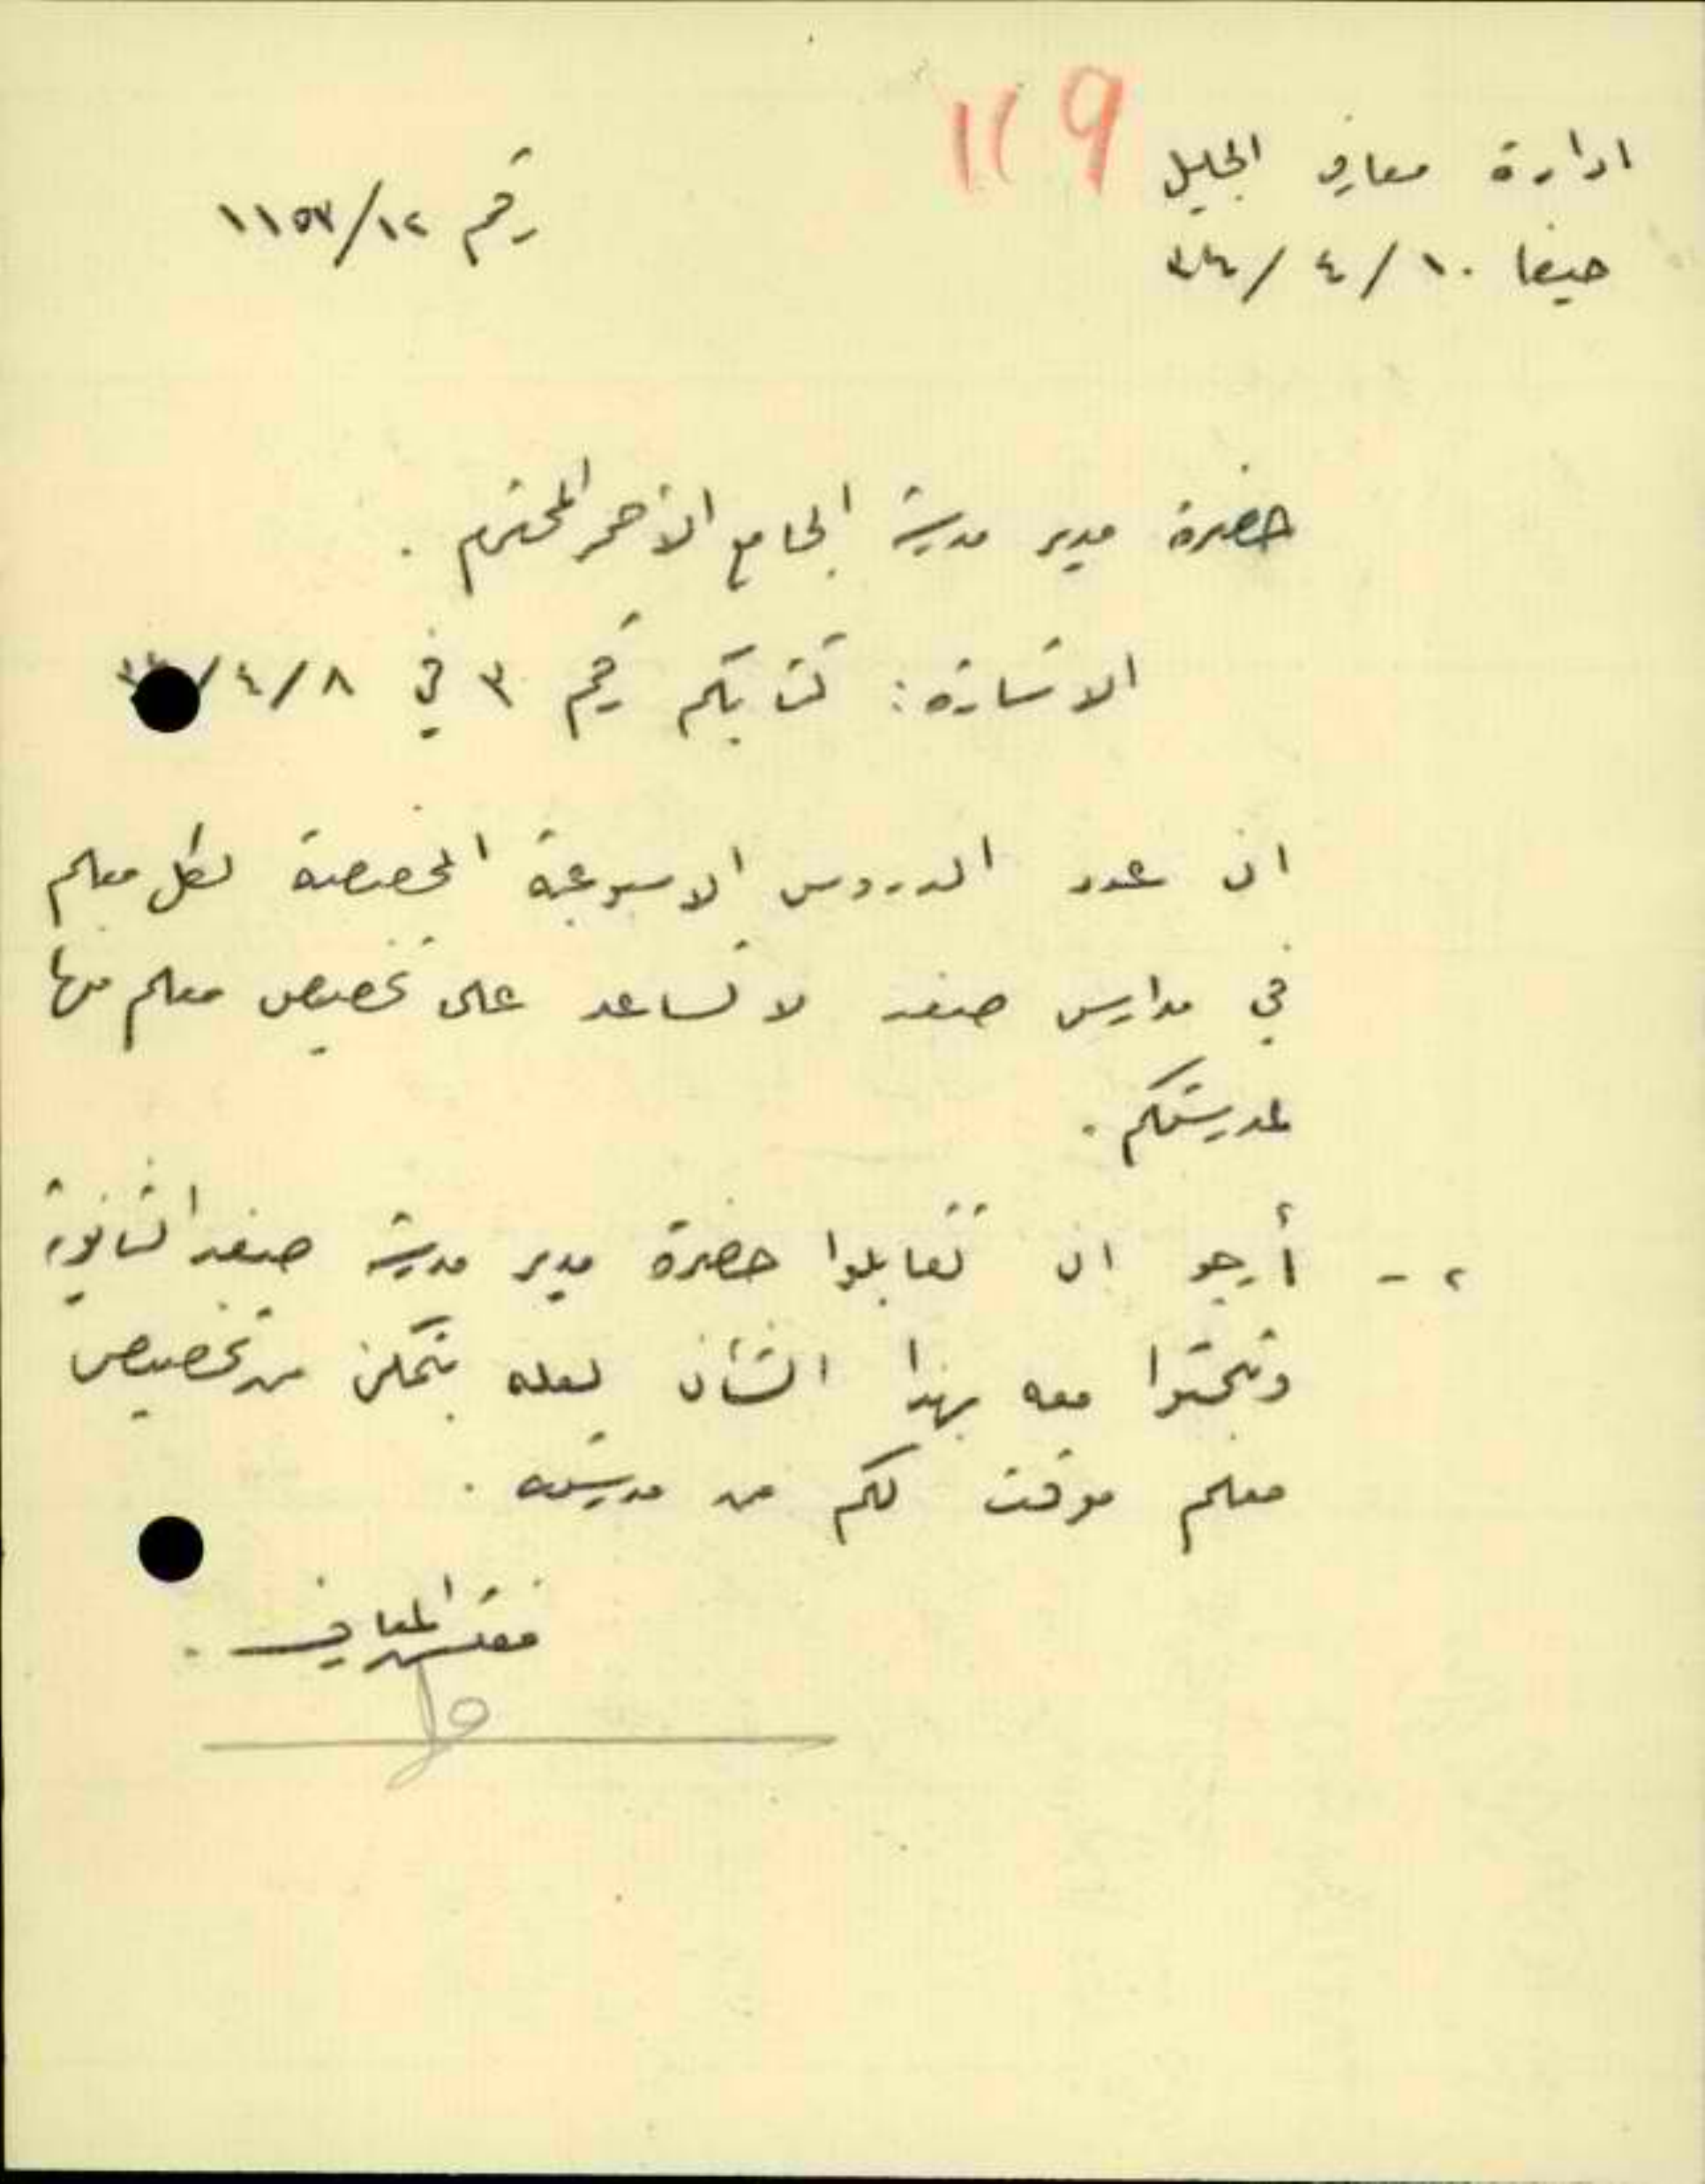 119
ادارة معارف الجليل
رقم ١١٥٣/١٢
حيفا ١٠/٤/
حضرة مدير مدرسة الجامع الاحمر المحترم .
الاشارة: كتابكم رقم ٣ في ٤/٨/
ان عدد الدروس الاسبوعية المخصصة لكل معلم
في مدارس صفد لا تساعد على تخصيص معلم منها
لمدرستكم .
٢ - أرجو ان تقابلوا حضرة مدير مدرسة صفد الثانوية
وتبحثوا معه بهذا الشأن لعله يتمكن من تخصيص
معلم موقت لكم من مدرسته .
مفتش المعارف .